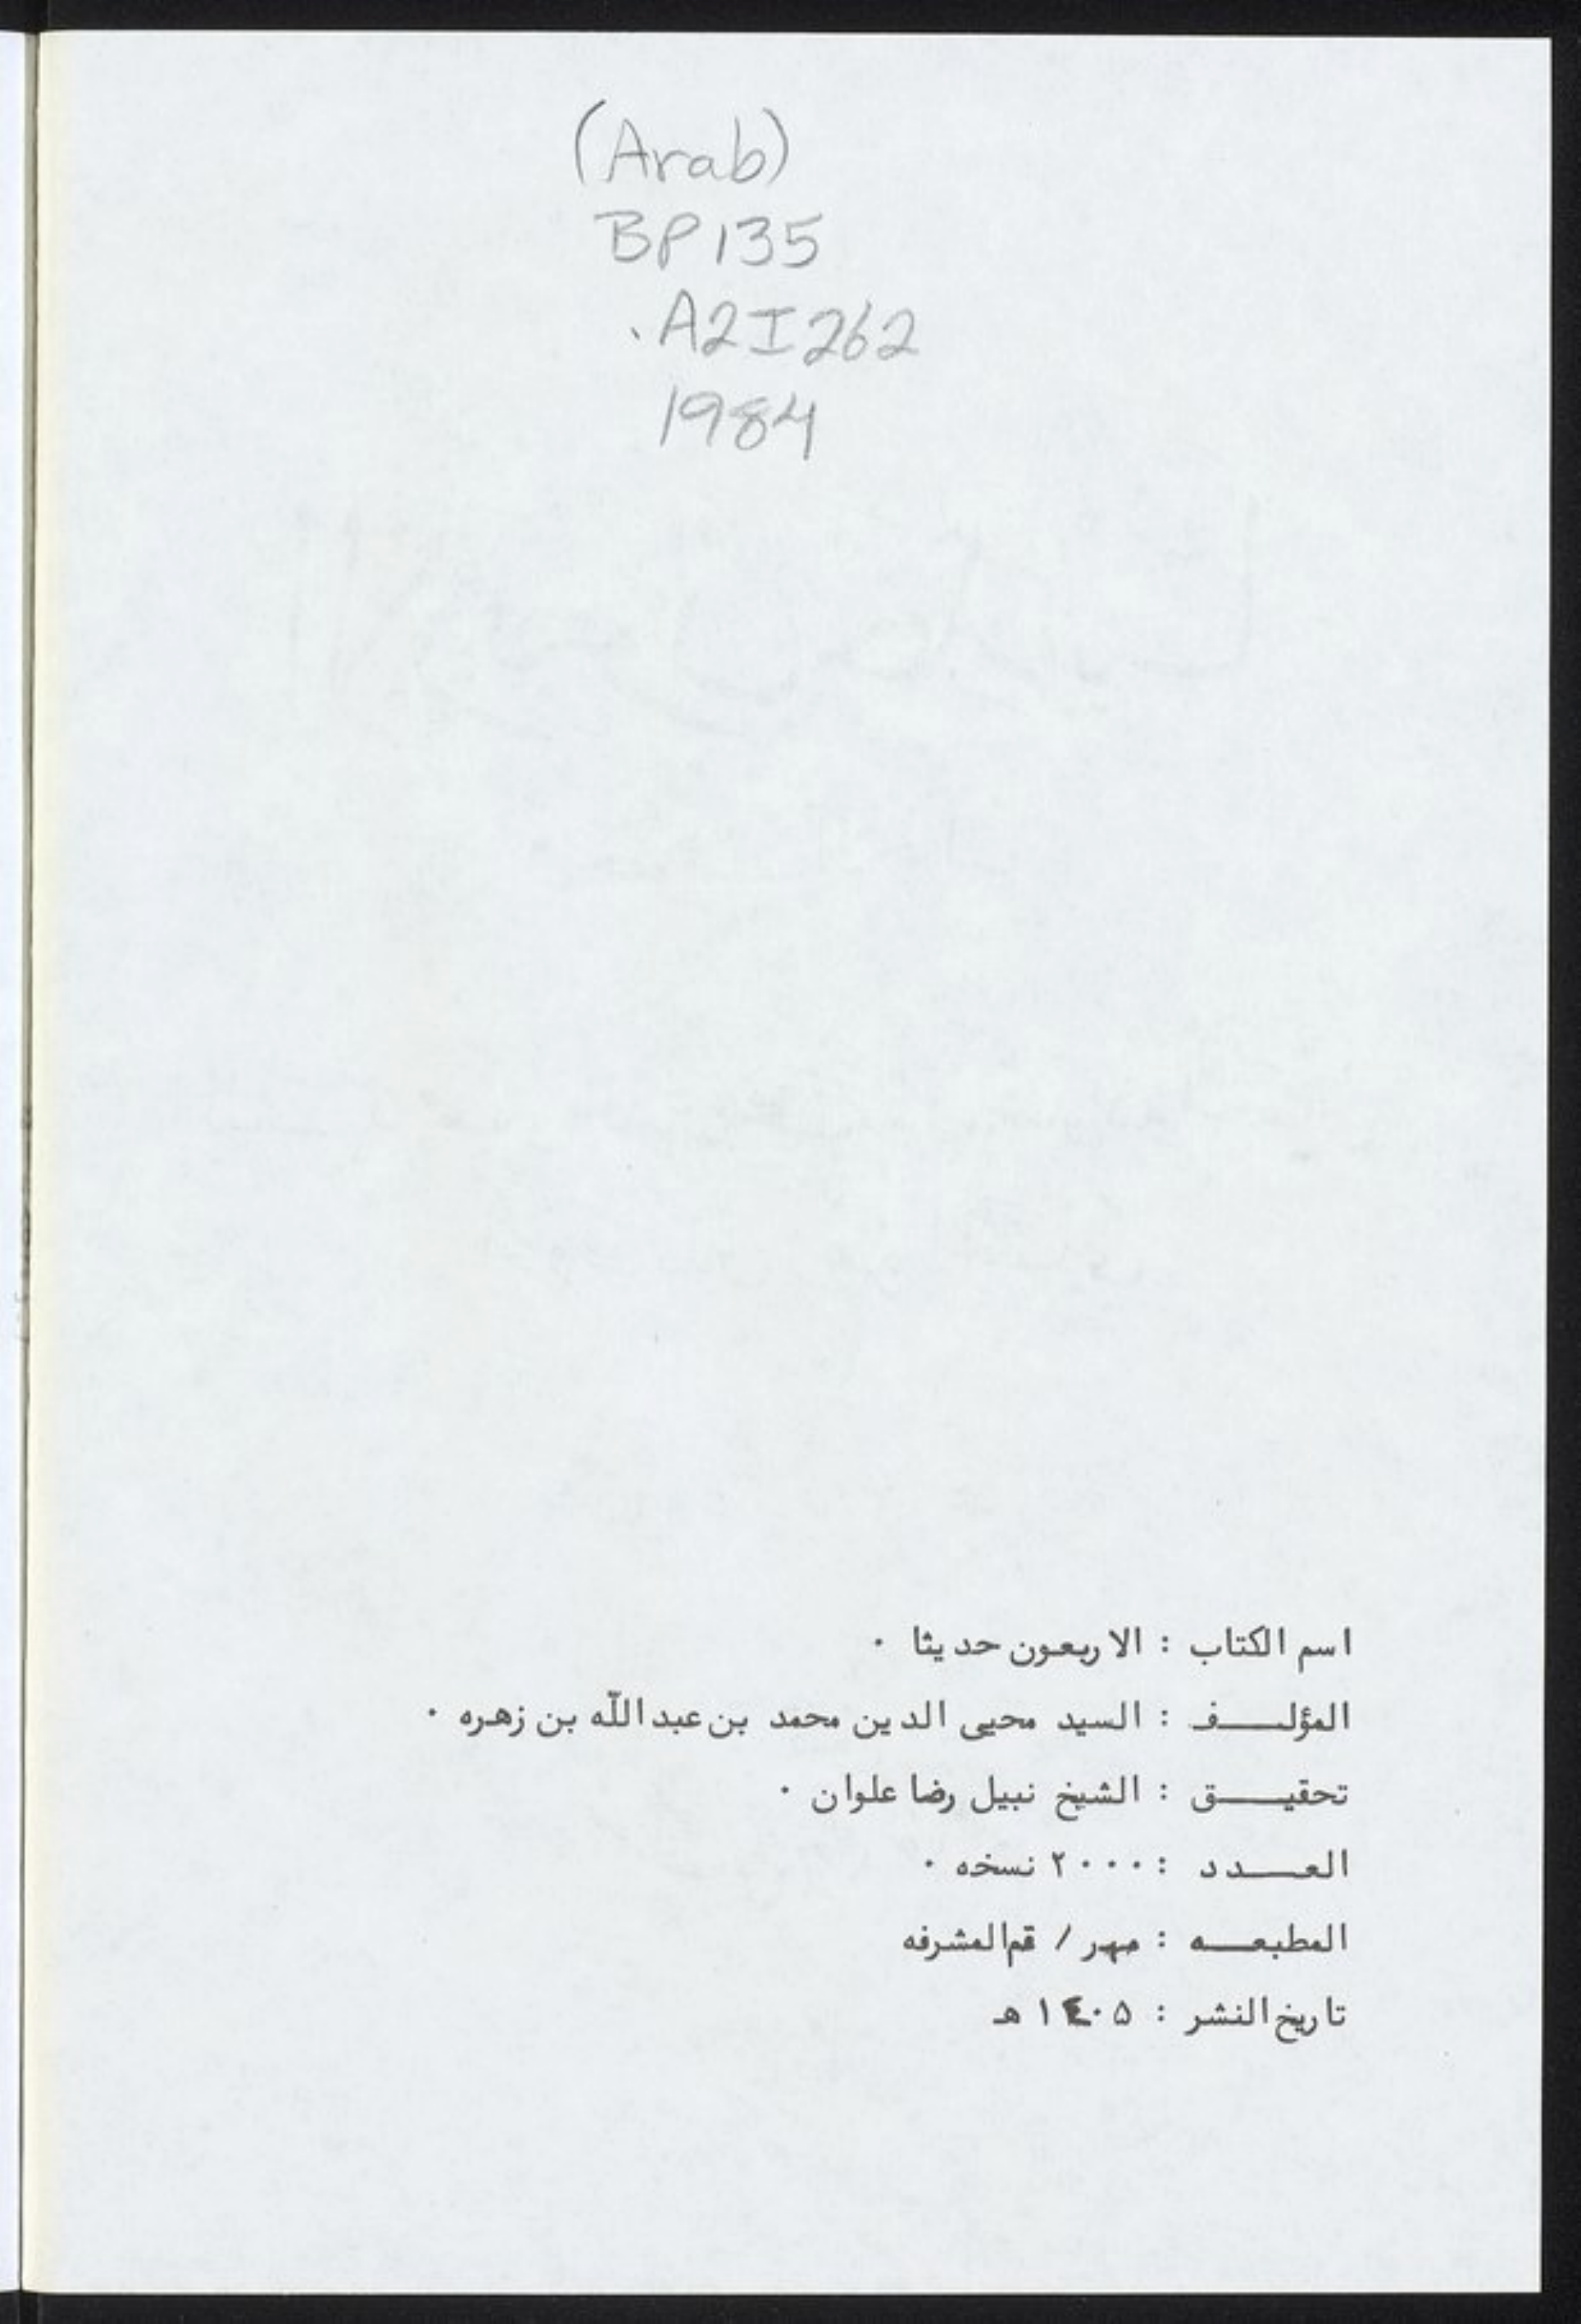 (Arab)
BP135
.A2I262
1984
اسم الكتاب : الاربعون حديثا ٠
المؤلف : السيد محيى الدين محمد بن عبد اللّه بن زهره ٠
تحقيق : الشيخ نبيل رضا علوان ٠
العدد : ٢٠٠٠ نسخه ٠
المطبعه : مهر / قم المشرفه
تاريخ النشر : ١٤٠۵ هـ